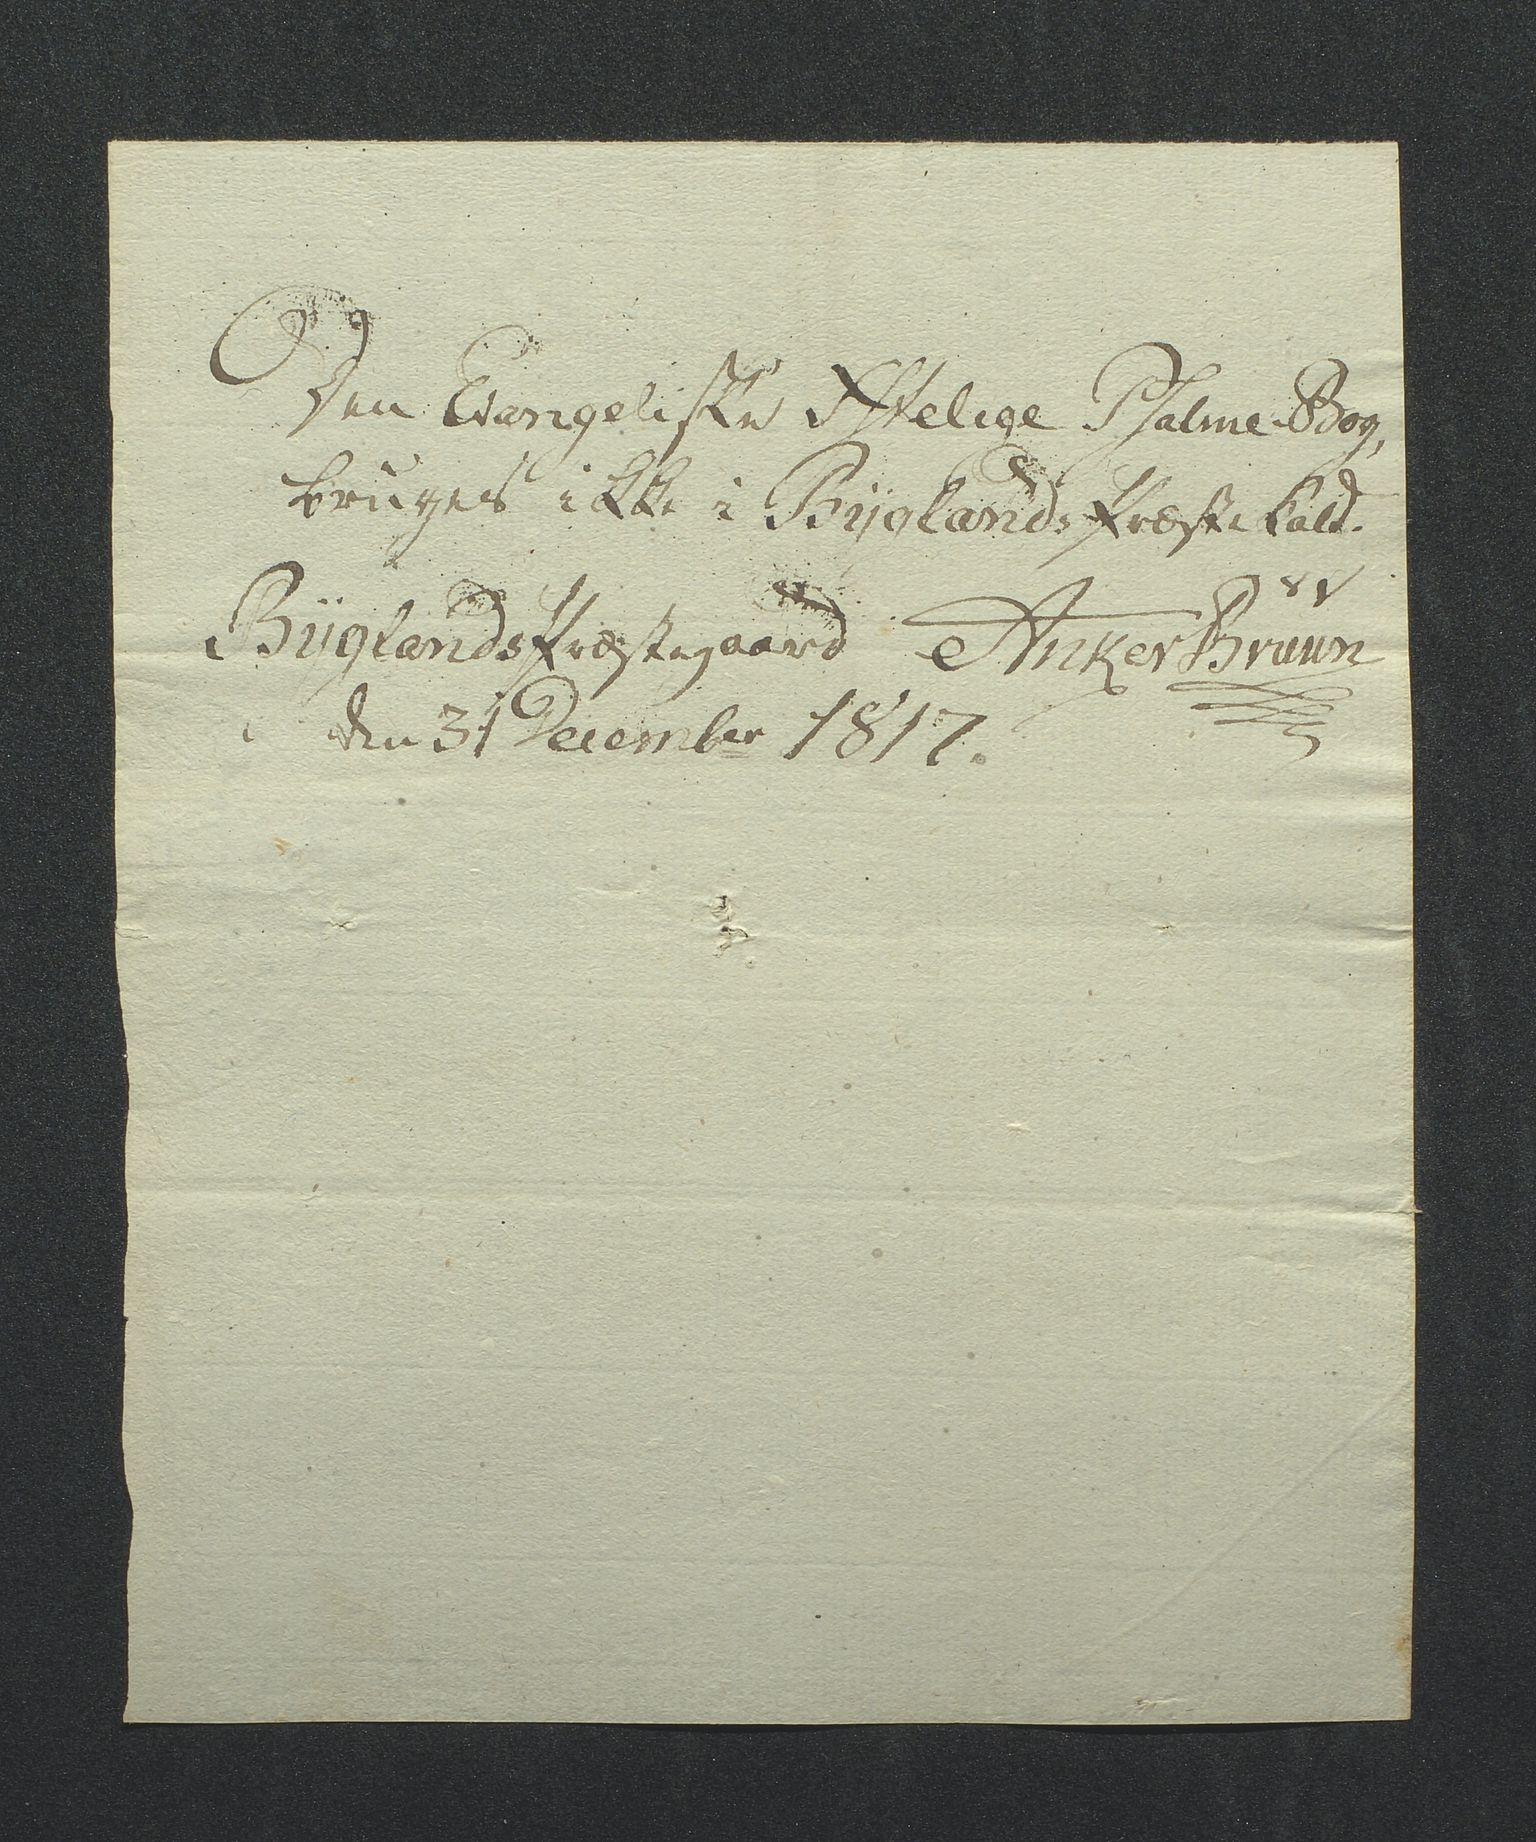 Den Evangeliske Xstelige Psalme-Bog,
bruges ikke i Býglands Præste Kald.
Býglands Præstegaard Anker Bruun
den 31 December 1817.